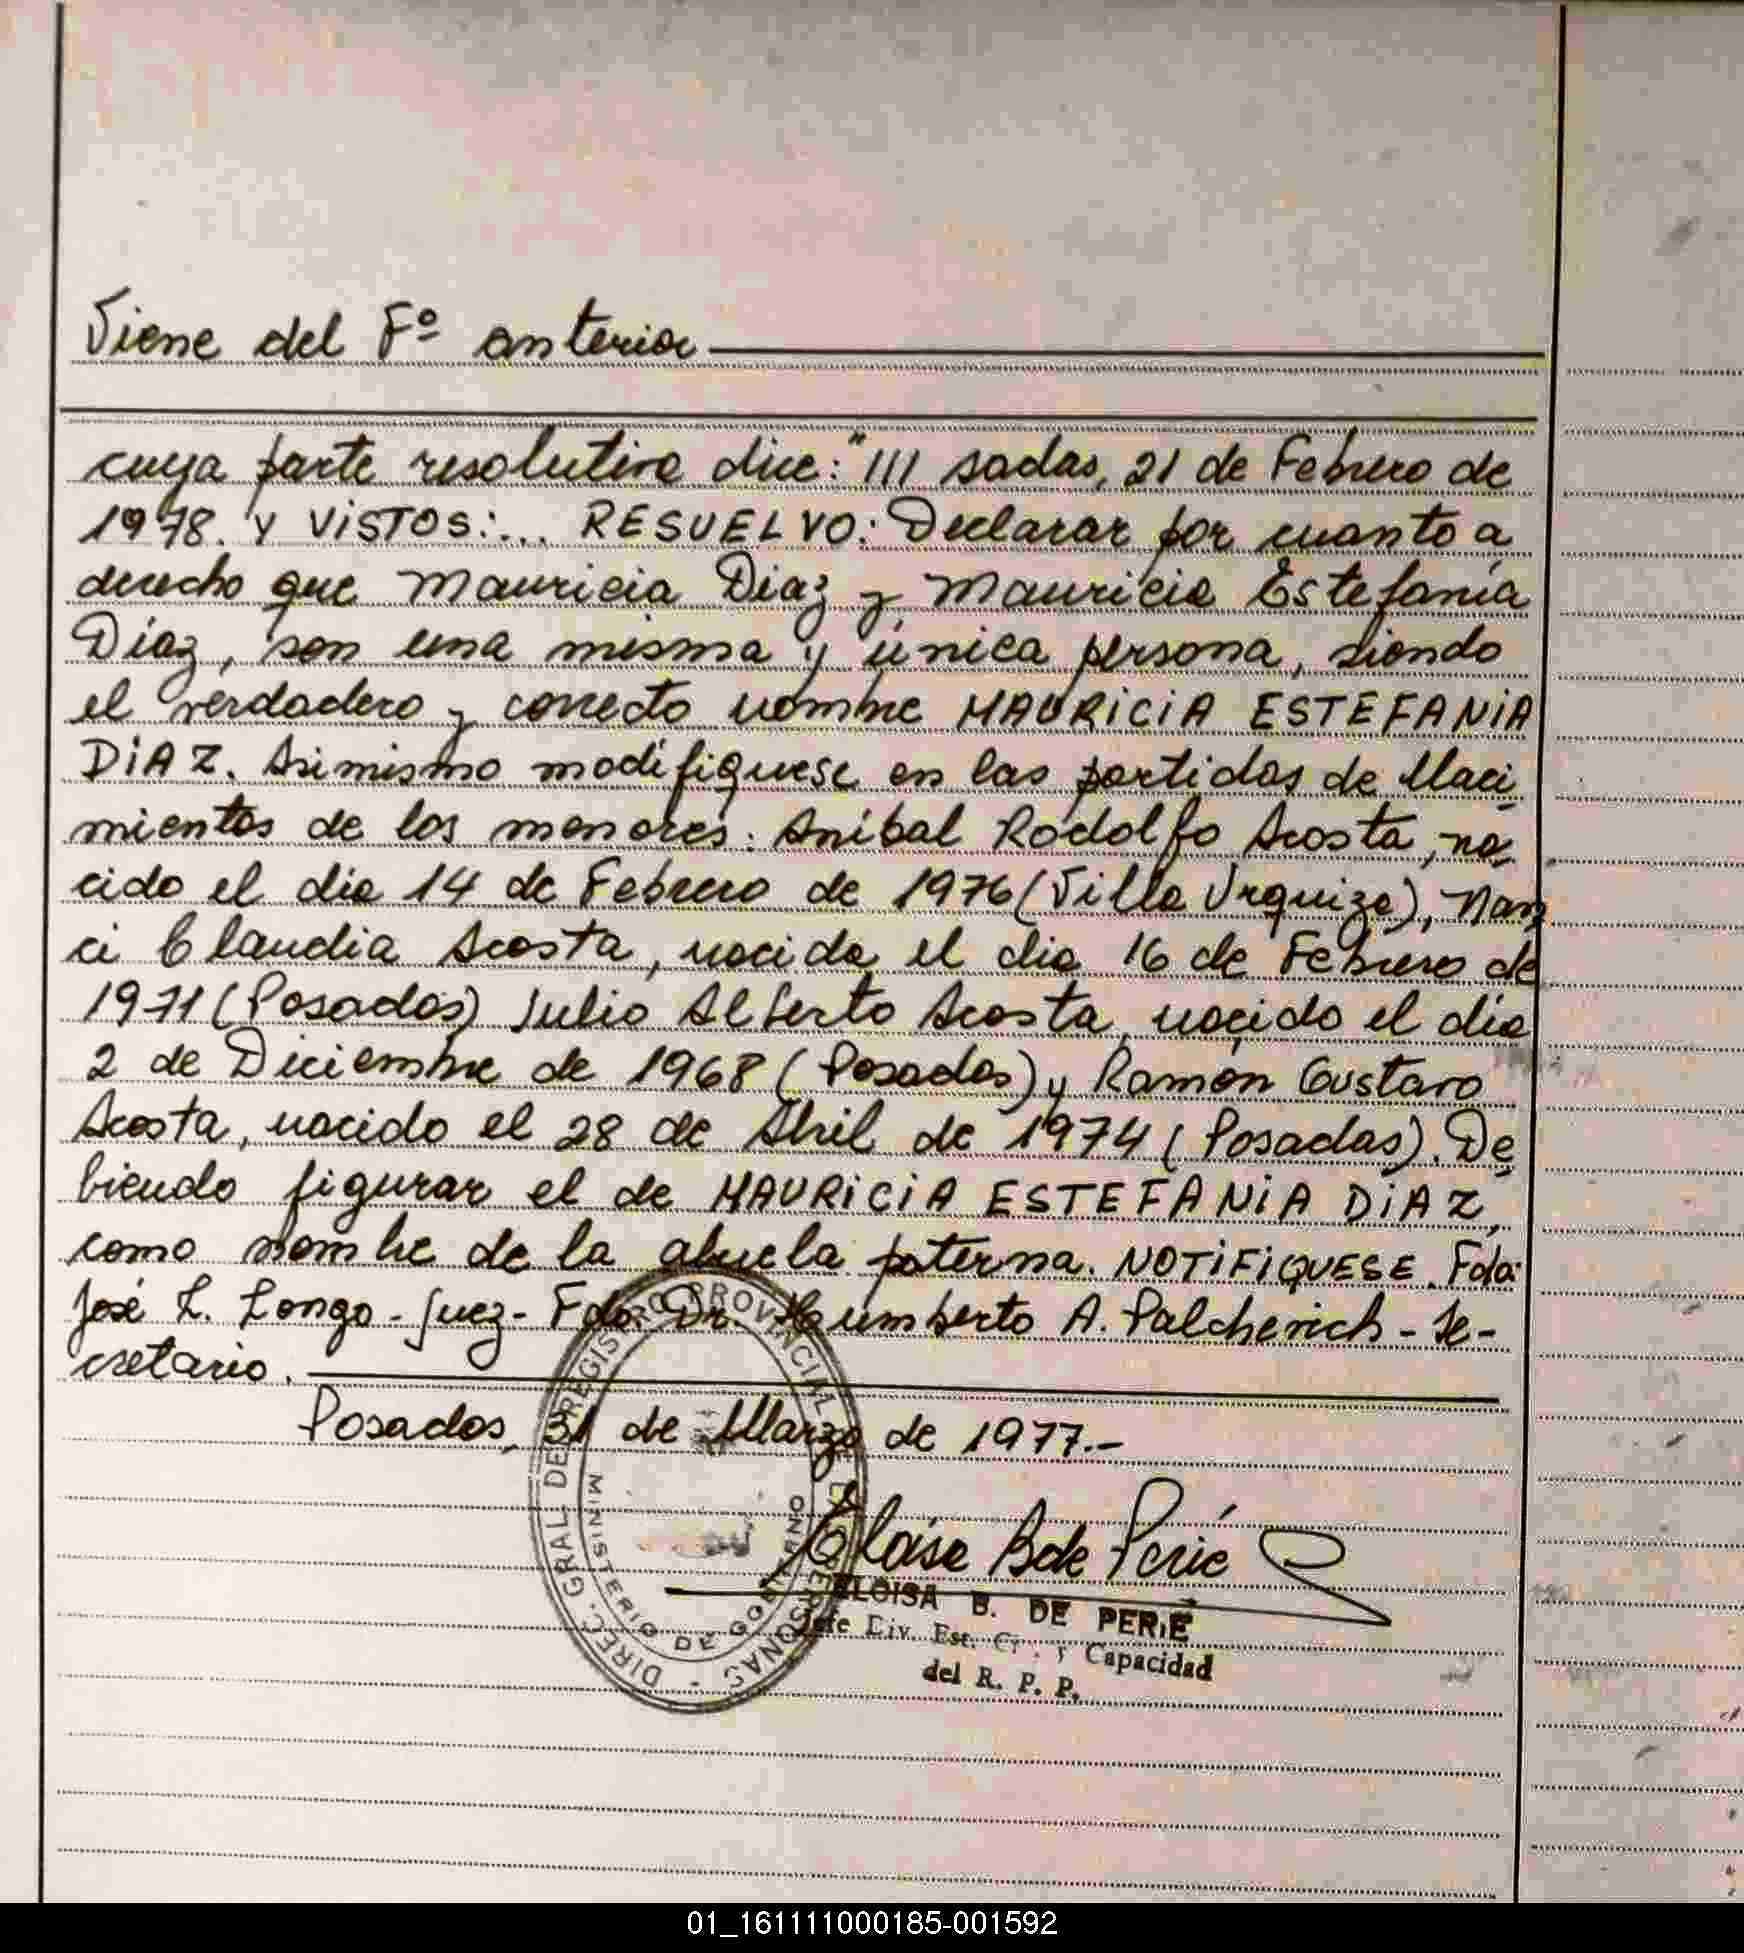 Viene del Fº anterior
cuya parte resolutiva dice: "/// sadas, 21 de Febrero de
1978. Y VISTOS:... RESUELVO: Declarar por cuanto a
derecho que Mauricia Diaz y Mauricia Estefanía
Díaz, son una misma y única persona, siendo
el verdadero y correcto nombre MAURICIA ESTEFANIA
DIAZ. Asimismo modifiquese en las partidas de Naci
mientos de los menores: Anibal Rodolfo Acosta, na
cido el dia 14 de Febrero de 1976 (Villa Urquiza), Nan
ci Claudia Acosta, nacida el dia 16 de Febrero de
1971 (Posadas) Julio Alberto Acosta, nacido el dia
2 de Diciembre de 1968 (Posadas) y Ramón Gustavo
Acosta, nacido el 28 de Abril de 1974 (Posadas). De
biendo figurar el de MAURICIA ESTEFANIA DIAZ,
como nombre de la abuela paterna. NOTIFIQUESE. Fdo:
José L. Longo - Juez - Fdo. Dr. Humberto A. Palcherich - Se-
cretario.
Posadas, 31 de Marzo de 1977.-
Eloisa B de Perié
ELOISA B. DE PERIE
Jefe Div. Est. Cr. y Capacidad
del R. P. P.
DIREC. GRAL. DEL REGISTRO PROVINCIAL DE LAS PERSONAS -
MINISTERIO DE GOBIERNO
01_161111000185-001592